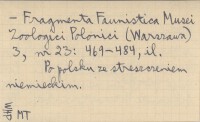 – Fragmenta Faunistica Musei
Zoologici Polonici (Warszawa)
3, nr 23: 469–484, il.
Po polsku ze streszczeniem
niemieckim.
WHP MT